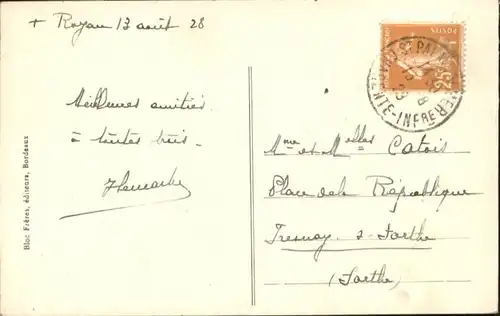 + Royan 13 août 28
Meilleures amitiés
à toutes trois.
Bloc Frères, éditeurs, Bordeaux
POSTES
25
ST PALAIS
MER
NTE-INFRE
Mme et Melles Catois
Place de la République
Fresnay s-Sarthe
(Sarthe)